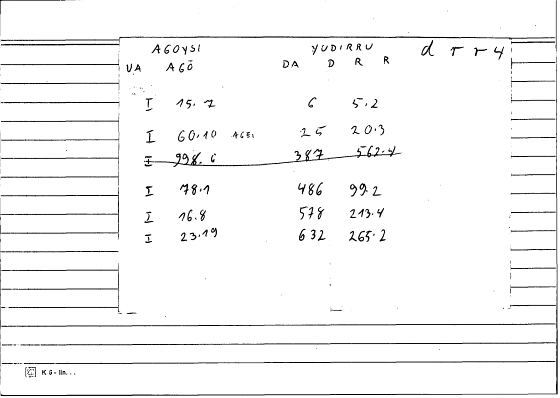 AGOYSI YUDIRRU d r r 4
UA AGŌ DA D R R
I 15.2 6 5.2
I 60.10 AGEI 25 20.3
I 998.6 387 562.4
I 78.1 486 99.2
I 16.8 578 213.4
I 23.19 632 265.2
K6-lin...